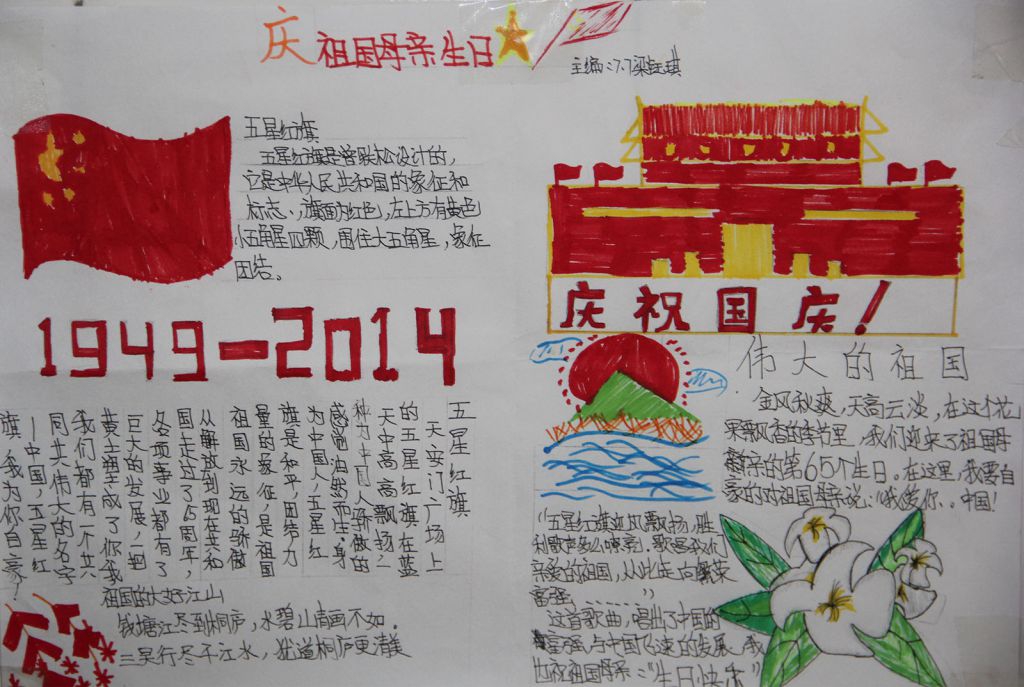 庆祖国母亲生日
主编:7.7梁
五星红旗
五星红旗是曾联松设计的,
它是中华人民共和国的象征和
标志。旗面为红色,左上方有黄色
小五角星四颗,围住大五角星,象征
团结。
1949-2014
庆祝国庆!
五星红旗
天安门广场上
的五星红旗在蓝
天中高高飘扬,一
种为中国人骄傲的
感触油然而生。身
为中国人,五星红
旗是和平,团结力
量的象征,是祖国
祖国永远的骄傲
从解放到现在共和
国走过了65周年,
各项事业都有了
巨大的发展,一把
黄土塑成了你我
我们都有一个共
同共伟大的名字
—中国,五星红
旗,我为你自豪!
祖国的大好江山
钱塘江尽到桐庐,水碧山青画不如.
三吴行尽千江水,犹道桐庐更清美
伟大的祖国
金风秋爽,天高云淡,在这个花
果飘香的季节里,我们迎来了祖国母
亲的第65个生日。在这里,我要自
豪的对祖国母亲说:"我爱你、中国!
"五星红旗迎风飘扬,胜
利歌声多么嘹亮.歌唱我们
亲爱的祖国,从此走向繁荣
富强。……"
这首歌曲,唱出了中国的
富强,与中国飞速的发展.我
也祝祖国母亲:"生日快乐"